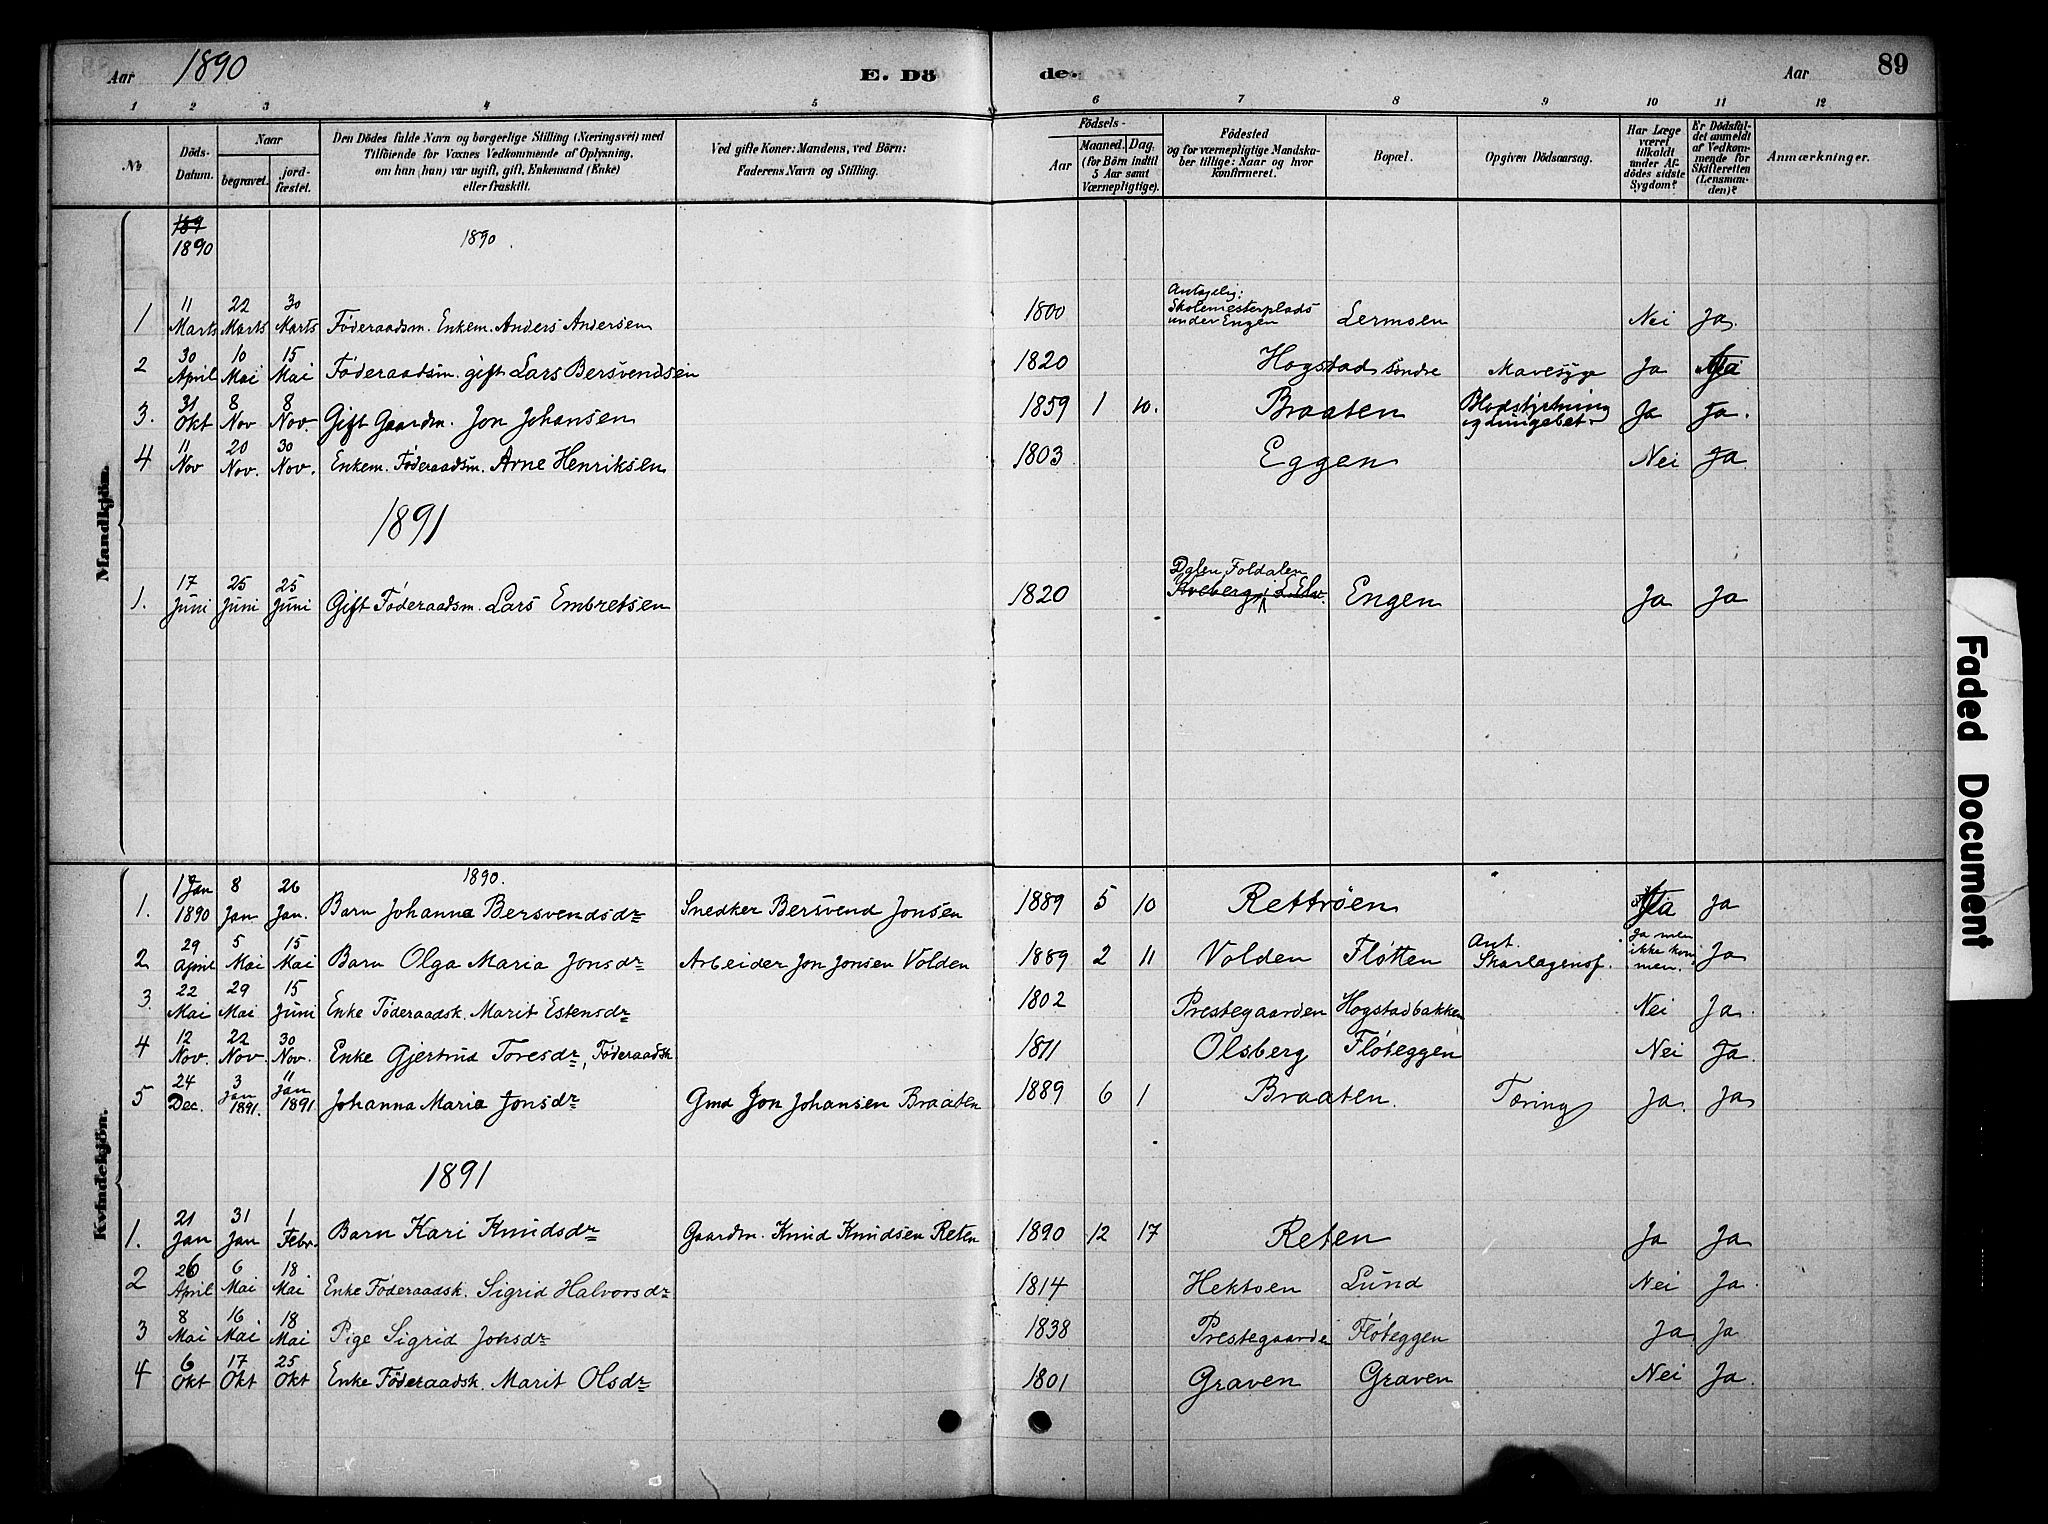 Aar 1890 E. Döde. Aar 89
1 2 3 4 5 6 7 8 9 10 11 12
No.
Döds-Datum.
Naar
begravet.
jord-fæstet.
Den Dödes fulde Navn og borgerlige Stilling (Næringsvei) med
Tilföiende for Voxnes Vedkommende af Oplysning,
om han (hun) var ugift, gift, Enkemand (Enke)
eller fraskilt.
Ved gifte Koner: Mandens, ved Börn:
Faderens Navn og Stilling.
Födsels-
Aar
Maaned. Dag.
(for Börn indtil
5 Aar samt
Værnepligtige).
Födested
og for værnepligtige Mandska-
ber tillige: Naar og hvor
konfirmeret.
Bopæl.
Opgiven Dödsaarsag.
Har Læge
været
tilkaldt
under Af-
dödes sidste
Sygdom?
Er Dödsfal-
det anmeldt
af Vedkom-
mende for
Skifteretten
(Lensman-
den)?
Anmærkninger.
Mandkjön.
189
1890 1890.
1 11 Marts 22 Marts 30 Marts Føderaadsm. Enkem. Anders Andersen 1800 Antagelig: Skolemesterplads under Engen Lermoen Nei Ja.
2 30 April 10 Mai 15 Mai Føderaadsm. gift Lars Bersvendsen 1820 Hogstad søndre Mavesyge Ja Ja
3. 31 Okt 8 Nov 8 Nov. Gift Gaardm. Jon Johansen 1859 1 10. Braaten Blodstyrtning Ja Ja.
4 11 Nov 20 Nov. 30 Nov. Enkem. Føderaadsm. Arne Henriksen 1803 Eggen Nei Ja
1891
1. 17 Juni 25 Juni 25 Juni Gift Føderaadsm. Lars Embretsen 1820 Dalen, Foldalen Engen Ja Ja
Kvindekjön.
1890.
1. 1 Jan 1890 8 Jan 26 Jan. Barn Johanna Bersvendsdr Snedker Bersvend Jonsen 1889 5 10 Rettrøen Ja Ja
2 29 April 5 Mai 15 Mai Barn Olga Maria Jonsdr Arbeider Jon Jonsen Volden 1889 2 11 Volden Fløtten Ant. Skarlagensf. Ja men ikke kommen. Ja
3. 22 Mai 29 Mai 15 Juni Enke Føderaadsk. Marit Estensdr 1802 Prestegaarden Hogstadbakken Nei Ja.
4 12 Nov. 22 Nov. 30 Nov. Enke Gjertrud Toresdr, Føderaadsk. 1811 Olsberg Fløteggen Nei Ja.
5 24 Dec. 3 Jan 1891. 11 Jan 1891 Johanna Maria Jonsdr Gmd Jon Johansen Braaten 1889 6 1 Braaten. Tæring Ja. Ja
1891
1. 21 Jan 31 Jan 1 Febr. Barn Kari Knudsdr Gaardm. Knud Knudsen Reten 1890 12 17 Reten Ja Ja
2 26 April 6 Mai 18 Mai Enke Føderaadsk. Sigrid Halvorsdr 1814 Hektoen Lund Nei Ja.
3 8 Mai 16 Mai 18 Mai Pige Sigrid Jonsdr 1838 Prestegaarden Fløteggen Ja Ja
4 6 Okt 17 Okt 25 Okt Enke Føderaadsk. Marit Olsdr 1801 Graven Graven Nei Ja.
Faded Document